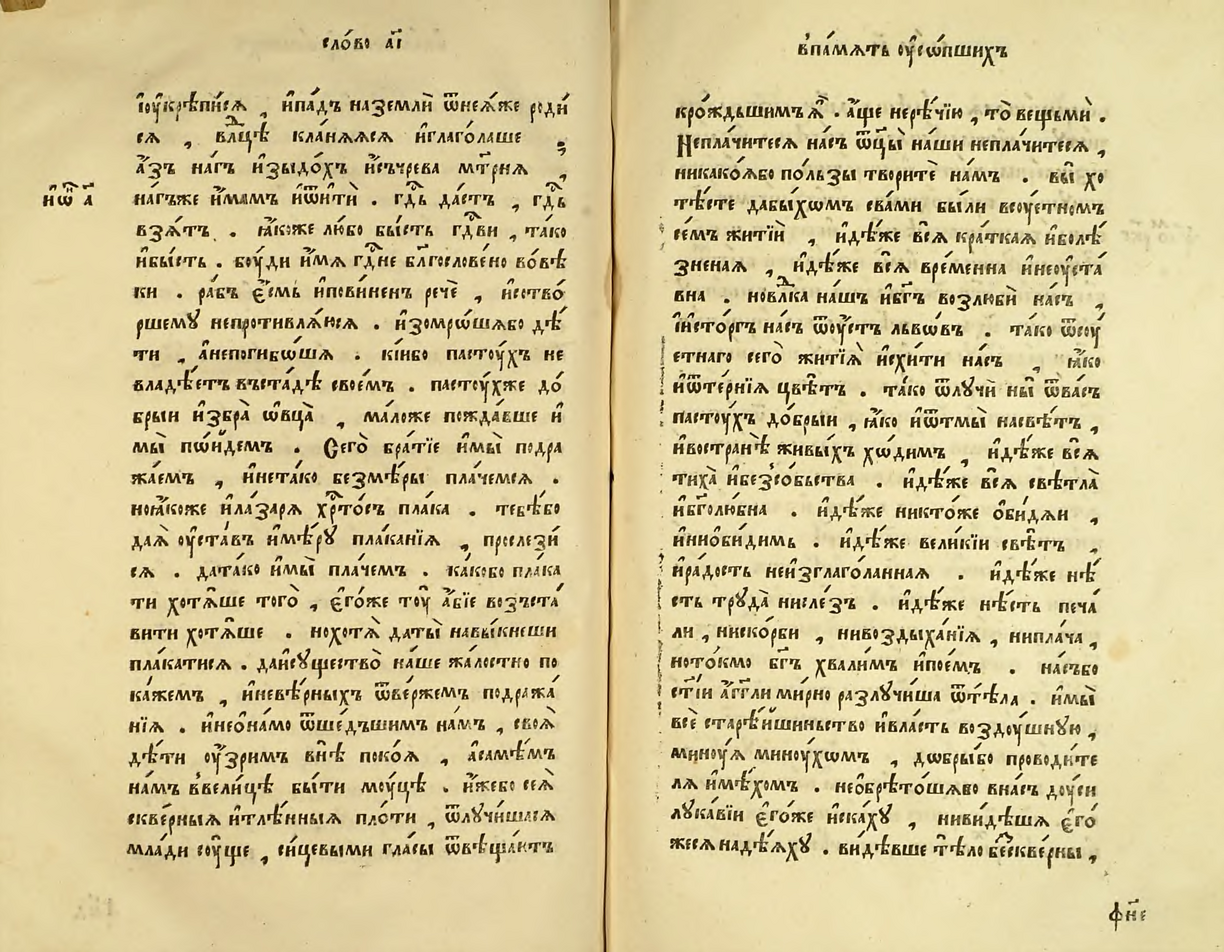 сло́во а҃і
і҆оу҆крѣписѧ , и҆па́дъ наземлѝ ѿнеѧ́же роди́
сѧ , влⷣцѣ кланѧ́ѧсѧ и҆глаго́лаше ;
а҆́зъ нагъ и҆зыдо́хъ и҆съчрева мт҃рнѧ ,
и҆ѡ҆в а҃
нагъже и҆́мамъ и҆ѿитѝ . гдⷭ҇ь да́стъ , гдⷭ҇ь
взѧ́тъ . ꙗ҆́коже лю́бо бы́сть гдⷭ҇ви , та́ко
и҆бы́сть . бо́уди и҆́мѧ гдⷭ҇не блгⷭ҇ослове́но вовѣ́
ки . ра́бъ є҆́смь и҆пови́ненъ речѐ , и҆ство́
ршемꙋ непроти́влѧюсѧ . и҆зомро́шѧбо дѣ́
ти , а҆непогибо́шѧ . кі́ибо пасто́ухъ не
владѣ́етъ въста́дѣ свое́мъ . пасто́ухже до́
брыи и҆збра̀ ѡ҆вца̀ , ма́ложе пожда́вше и҆
мы̀ по́идемъ . Сего̀ бра́тїе и҆мы̀ подра
жа́емъ , и҆нета́ко безмѣ́ры пла́чемсѧ .
ноꙗ҆́коже и҆ла́зарѧ хрⷭ҇то́съ пла́ка . тебѣ́бо
даѧ̀ оу҆ста́въ и҆мѣ́рꙋ пла́канїѧ , прослези́
сѧ . дата́ко и҆мы̀ пла́чемъ . ка́кобо пла́ка
ти хотѧ́ше того̀ , є҆го́же тоу̀ а҆́бїе возъста́
вити хотѧ́ше . нохотѧ̀ даты̀ навы́кнеши
пла́катисѧ . даи҆сꙋ́щество̀ на́ше жа́лостно по
ка́жемъ , и҆невѣ́рныхъ ѿве́ржемъ подража́
нїѧ . и҆нео́намо ѿше́дъшимъ на́мъ , своѧ̀
дѣ́ти оу҆́зримъ в́нѣ поко́ѧ , а҆самѣ́мъ
на́мъ в́вели́цѣ бы́ти мо́уцѣ . и҆́жебо сеѧ̀
скве́рныѧ и҆тлѣ́нныѧ пло́ти , ѿлꙋчи́шасѧ
мла́ди со́уще , си́цевыми гла́сы ѿвѣща́ютъ
в̾па́мѧть оу҆со́пшихъ
кро́ждьшимъ ѧ҆̀ . а҆́ще нерѣ́чїю , то̀ ве́щьми .
Непла́читесѧ на́съ ѿц҃ы̀ на́ши непла́читесѧ ,
никако́ѧбо по́льзы твори́те на́мъ . вы̀ хо
тѣ́сте дабы́хѡмъ сва́ми бы́ли всоу́етномъ
се́мъ житїѝ , и҆дѣ́же всѧ̀ кра́ткаѧ и҆болѣ́
зненаѧ , и҆дѣ́же всѧ̀ вре́менна и҆неоу҆ста́
вна . новлⷣка на́шъ и҆бг҃ъ возлюбѝ на́съ ,
і҆и҆сто́ргъ на́съ ѿоу́стъ льво́въ . та́ко ѿсоу́
етнаго сего̀ житїѧ̀ и҆схи́ти на́съ , ꙗ҆́ко
и҆ѿте́рнїѧ цвѣ́тъ . та́ко ѿлꙋчѝ ны̀ ѿва́съ
пасто́ухъ до́брыи , ꙗ҆́ко и҆ѿтмы̀ насвѣ́тъ ,
и҆востра́нѣ живы́хъ хо́димъ , и҆дѣ́же всѧ̀
тиха̀ и҆безсо́бьства . и҆дѣ́же всѧ̀ свѣ́тла
и҆бг҃олю́бна . и҆дѣ́же никто́же ѻ҆би́дѧи ,
и҆нио҆би́димь . и҆дѣ́же вели́кїи свѣ́тъ ,
и҆ра́дость неи҆зглаго́ланнаѧ . и҆дѣ́же нѣ́
сть трꙋда̀ нисле́зъ . и҆дѣ́же нѣ́сть печа́
ли , ниско́рби , нивоздыха́нїѧ , нипла́ча ,
ното́кмо бг҃ъ хва́лимъ и҆пое́мъ . на́събо
ст҃і́и а҆́гг҃ли ми́рно разлꙋчи́ша ѿтѣ́ла . и҆мы̀
всѐ старѣ́йшиньство и҆вла́сть воздоу́шнꙋю ,
миноу́ѧ миноу́хомъ , до́брыбо проводи́те
лѧ и҆мѣ́хомъ . необрѣто́шѧбо вна́съ до́уси
лꙋка́вїи є҆го́же и҆ска́хꙋ , ниви́дѣшѧ є҆го́
жесѧ надѣ́ѧхꙋ . ви́дѣвше тѣ́ло бескве́рны ,
фн҃е